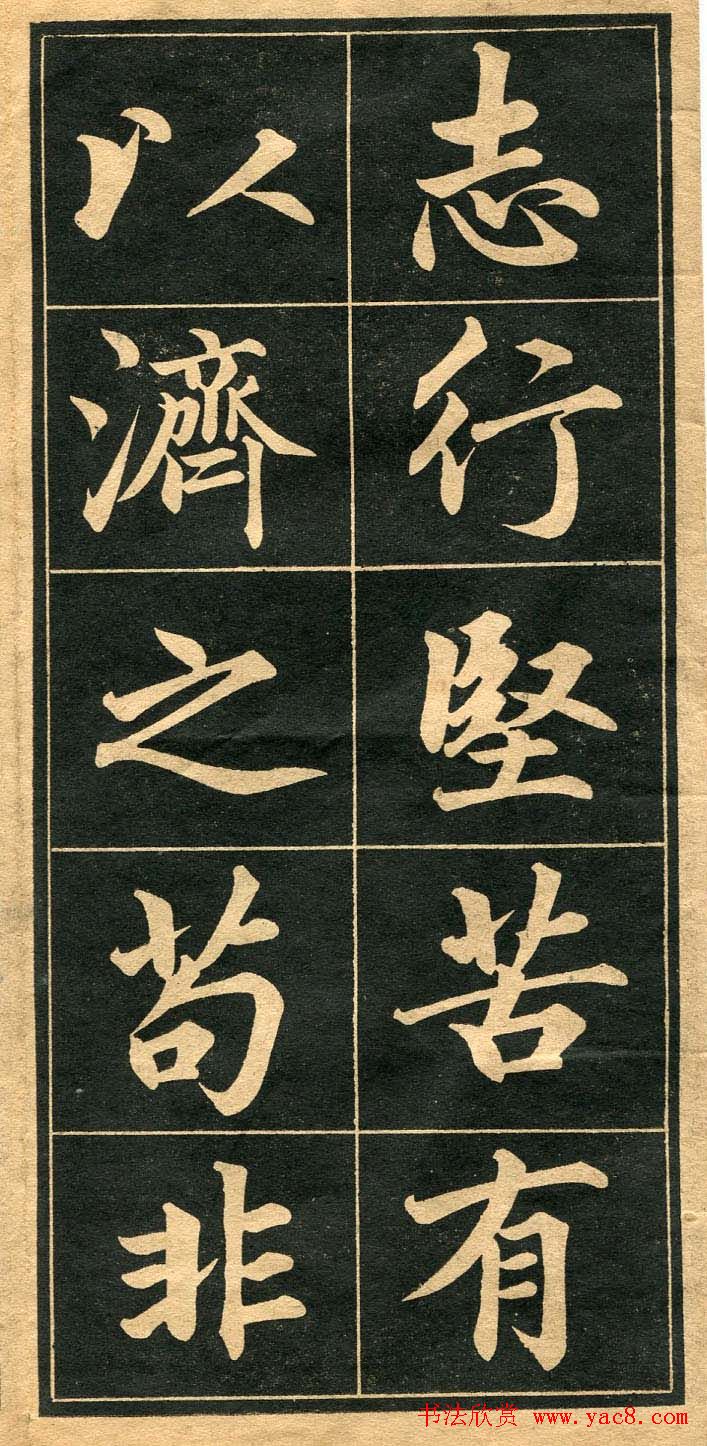 志行堅苦有
以濟之苟非
书法欣赏 www.yac8.com